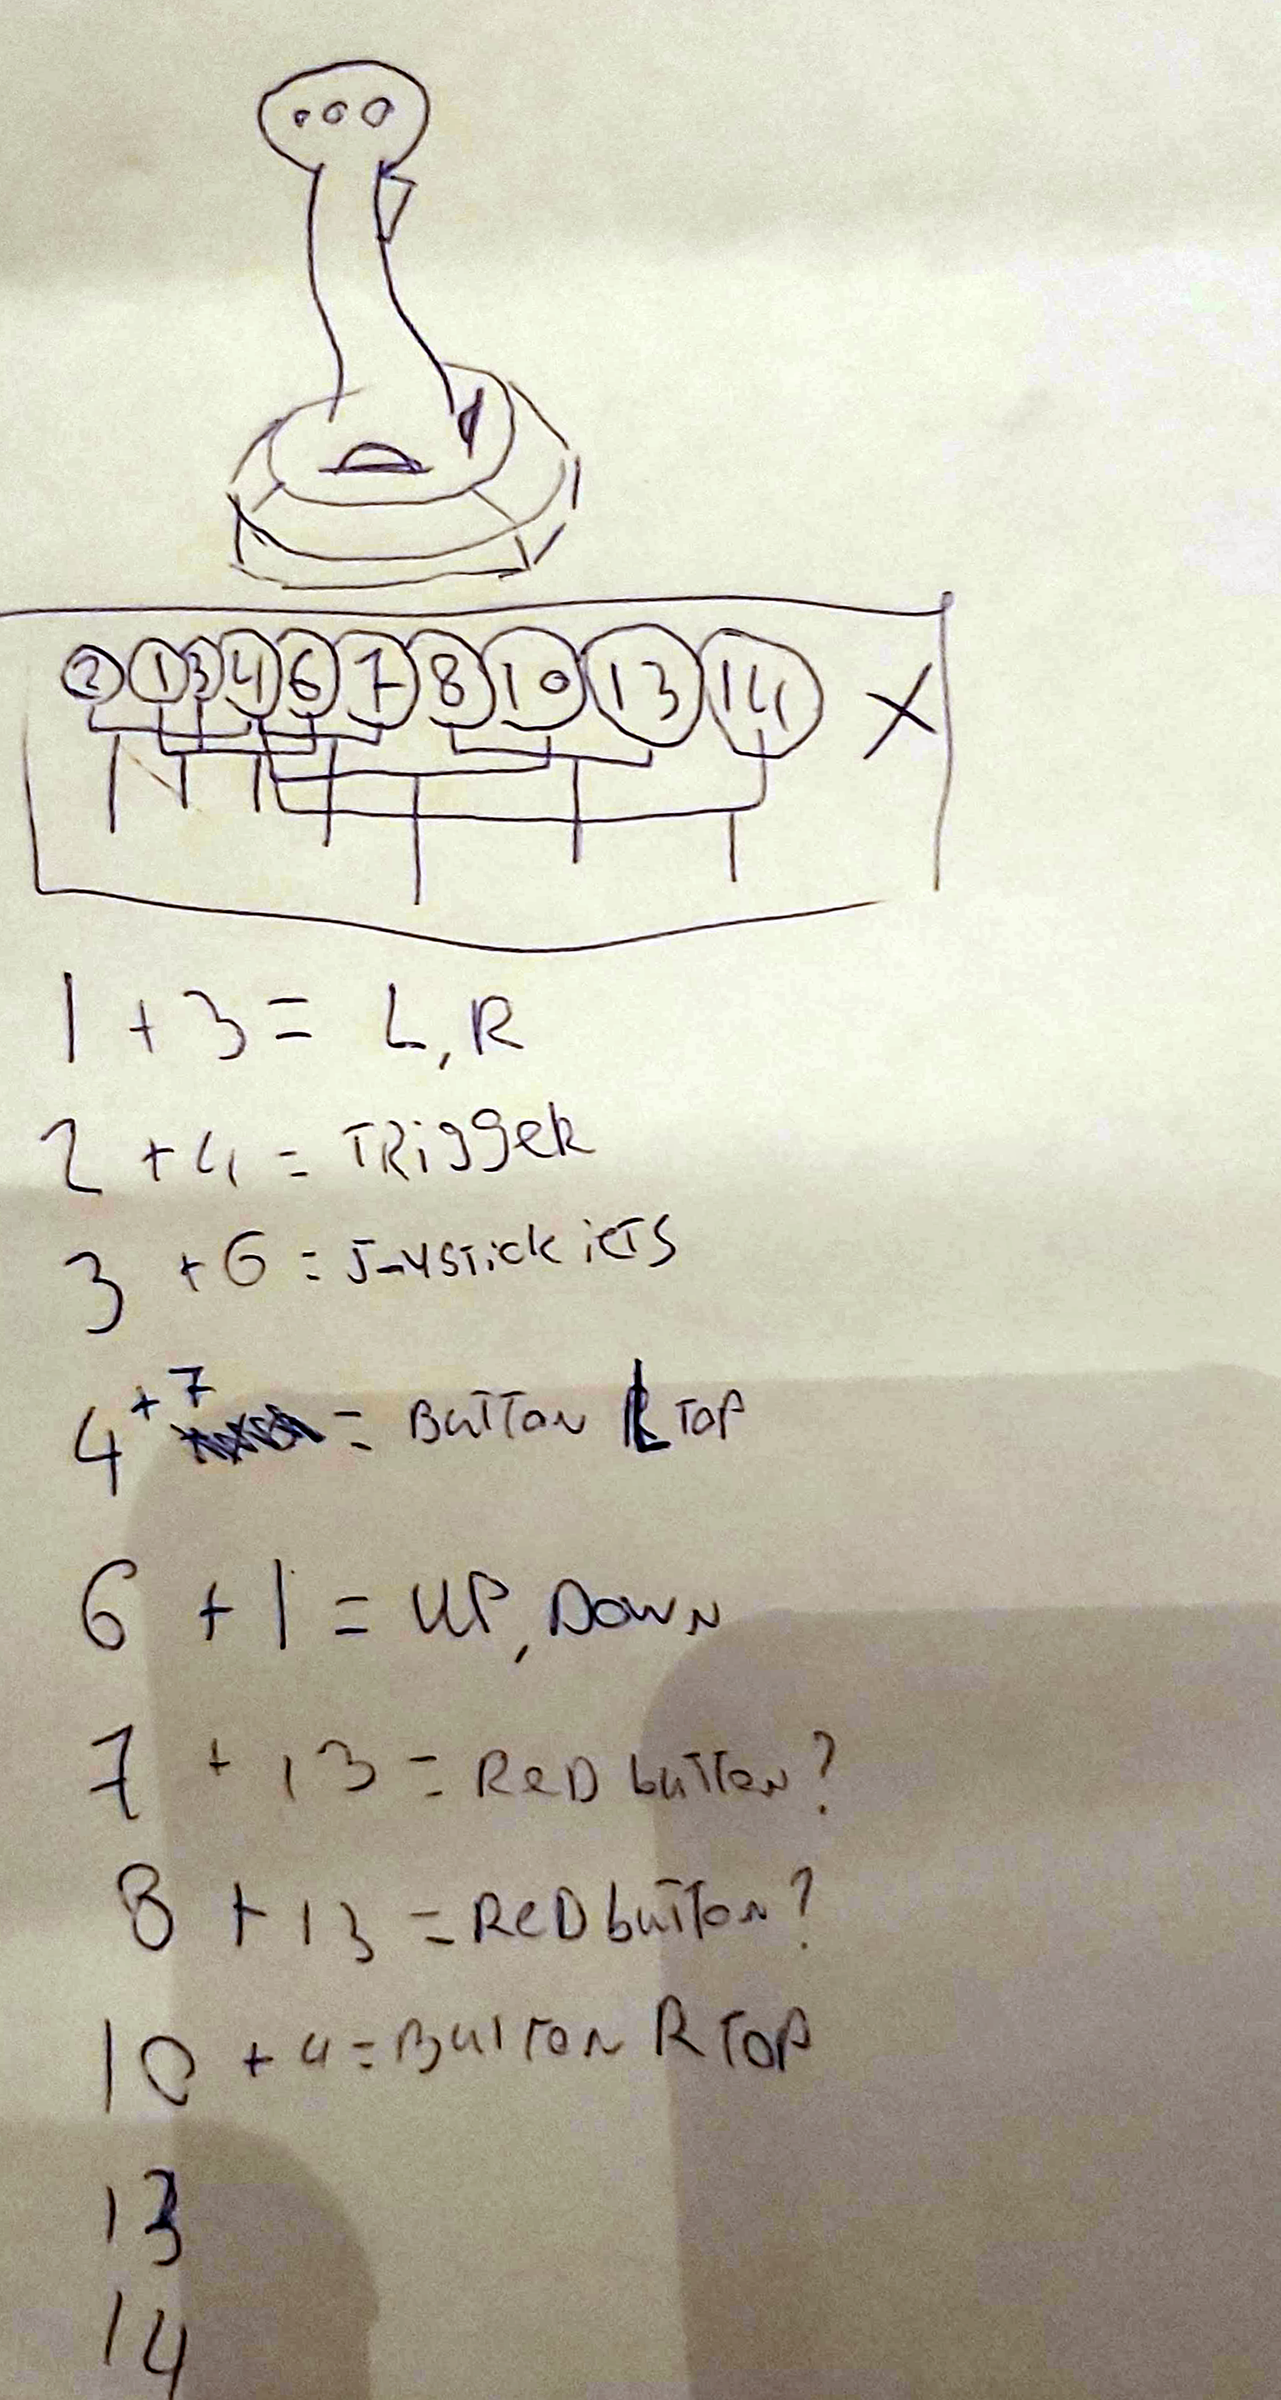 2 1 3 4 6 7 8 10 13 14 X
1 + 3 = L, R
2 + 4 = TRiggeR
3 + 6 = JoySTick ieTS
4 + 7 = BuTTon L TOP
6 + 1 = UP, DOWN
7 + 13 = ReD buTTon?
8 + 13 = ReD buTTon?
10 + 4 = BuTTon R TOP
13
14